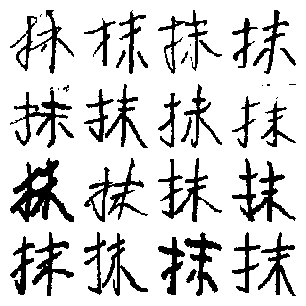 抹抹抹抹
抹抹抹抹
抹抹抹抹
抹抹抹抹